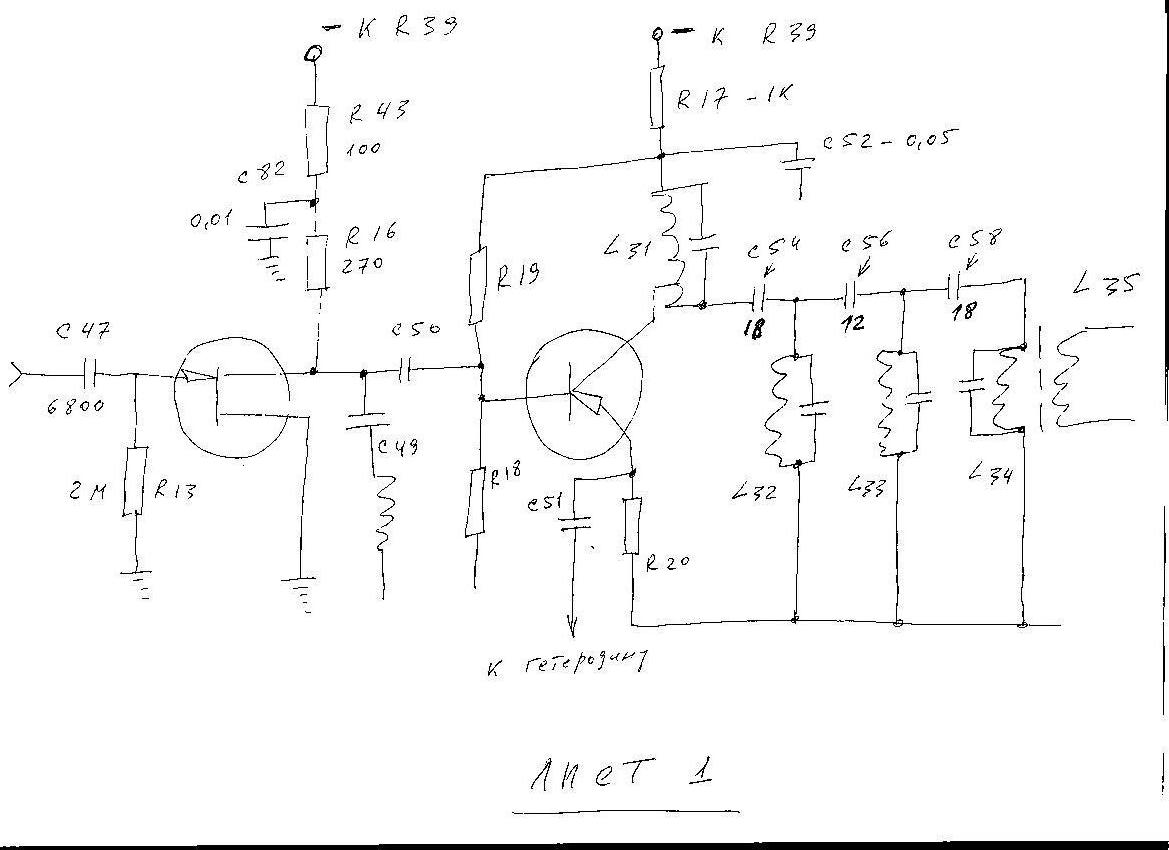 - К R39
- К R39
R43
100
R17 - 1К
C82
C52 - 0,05
0,01
R16
270
L31
C54
C56
C58
R19
L35
C47
C50
18
12
18
6800
C49
2М
R13
R18
C51
L32
L33
L34
R20
К гетеродину
ЛИСТ 1